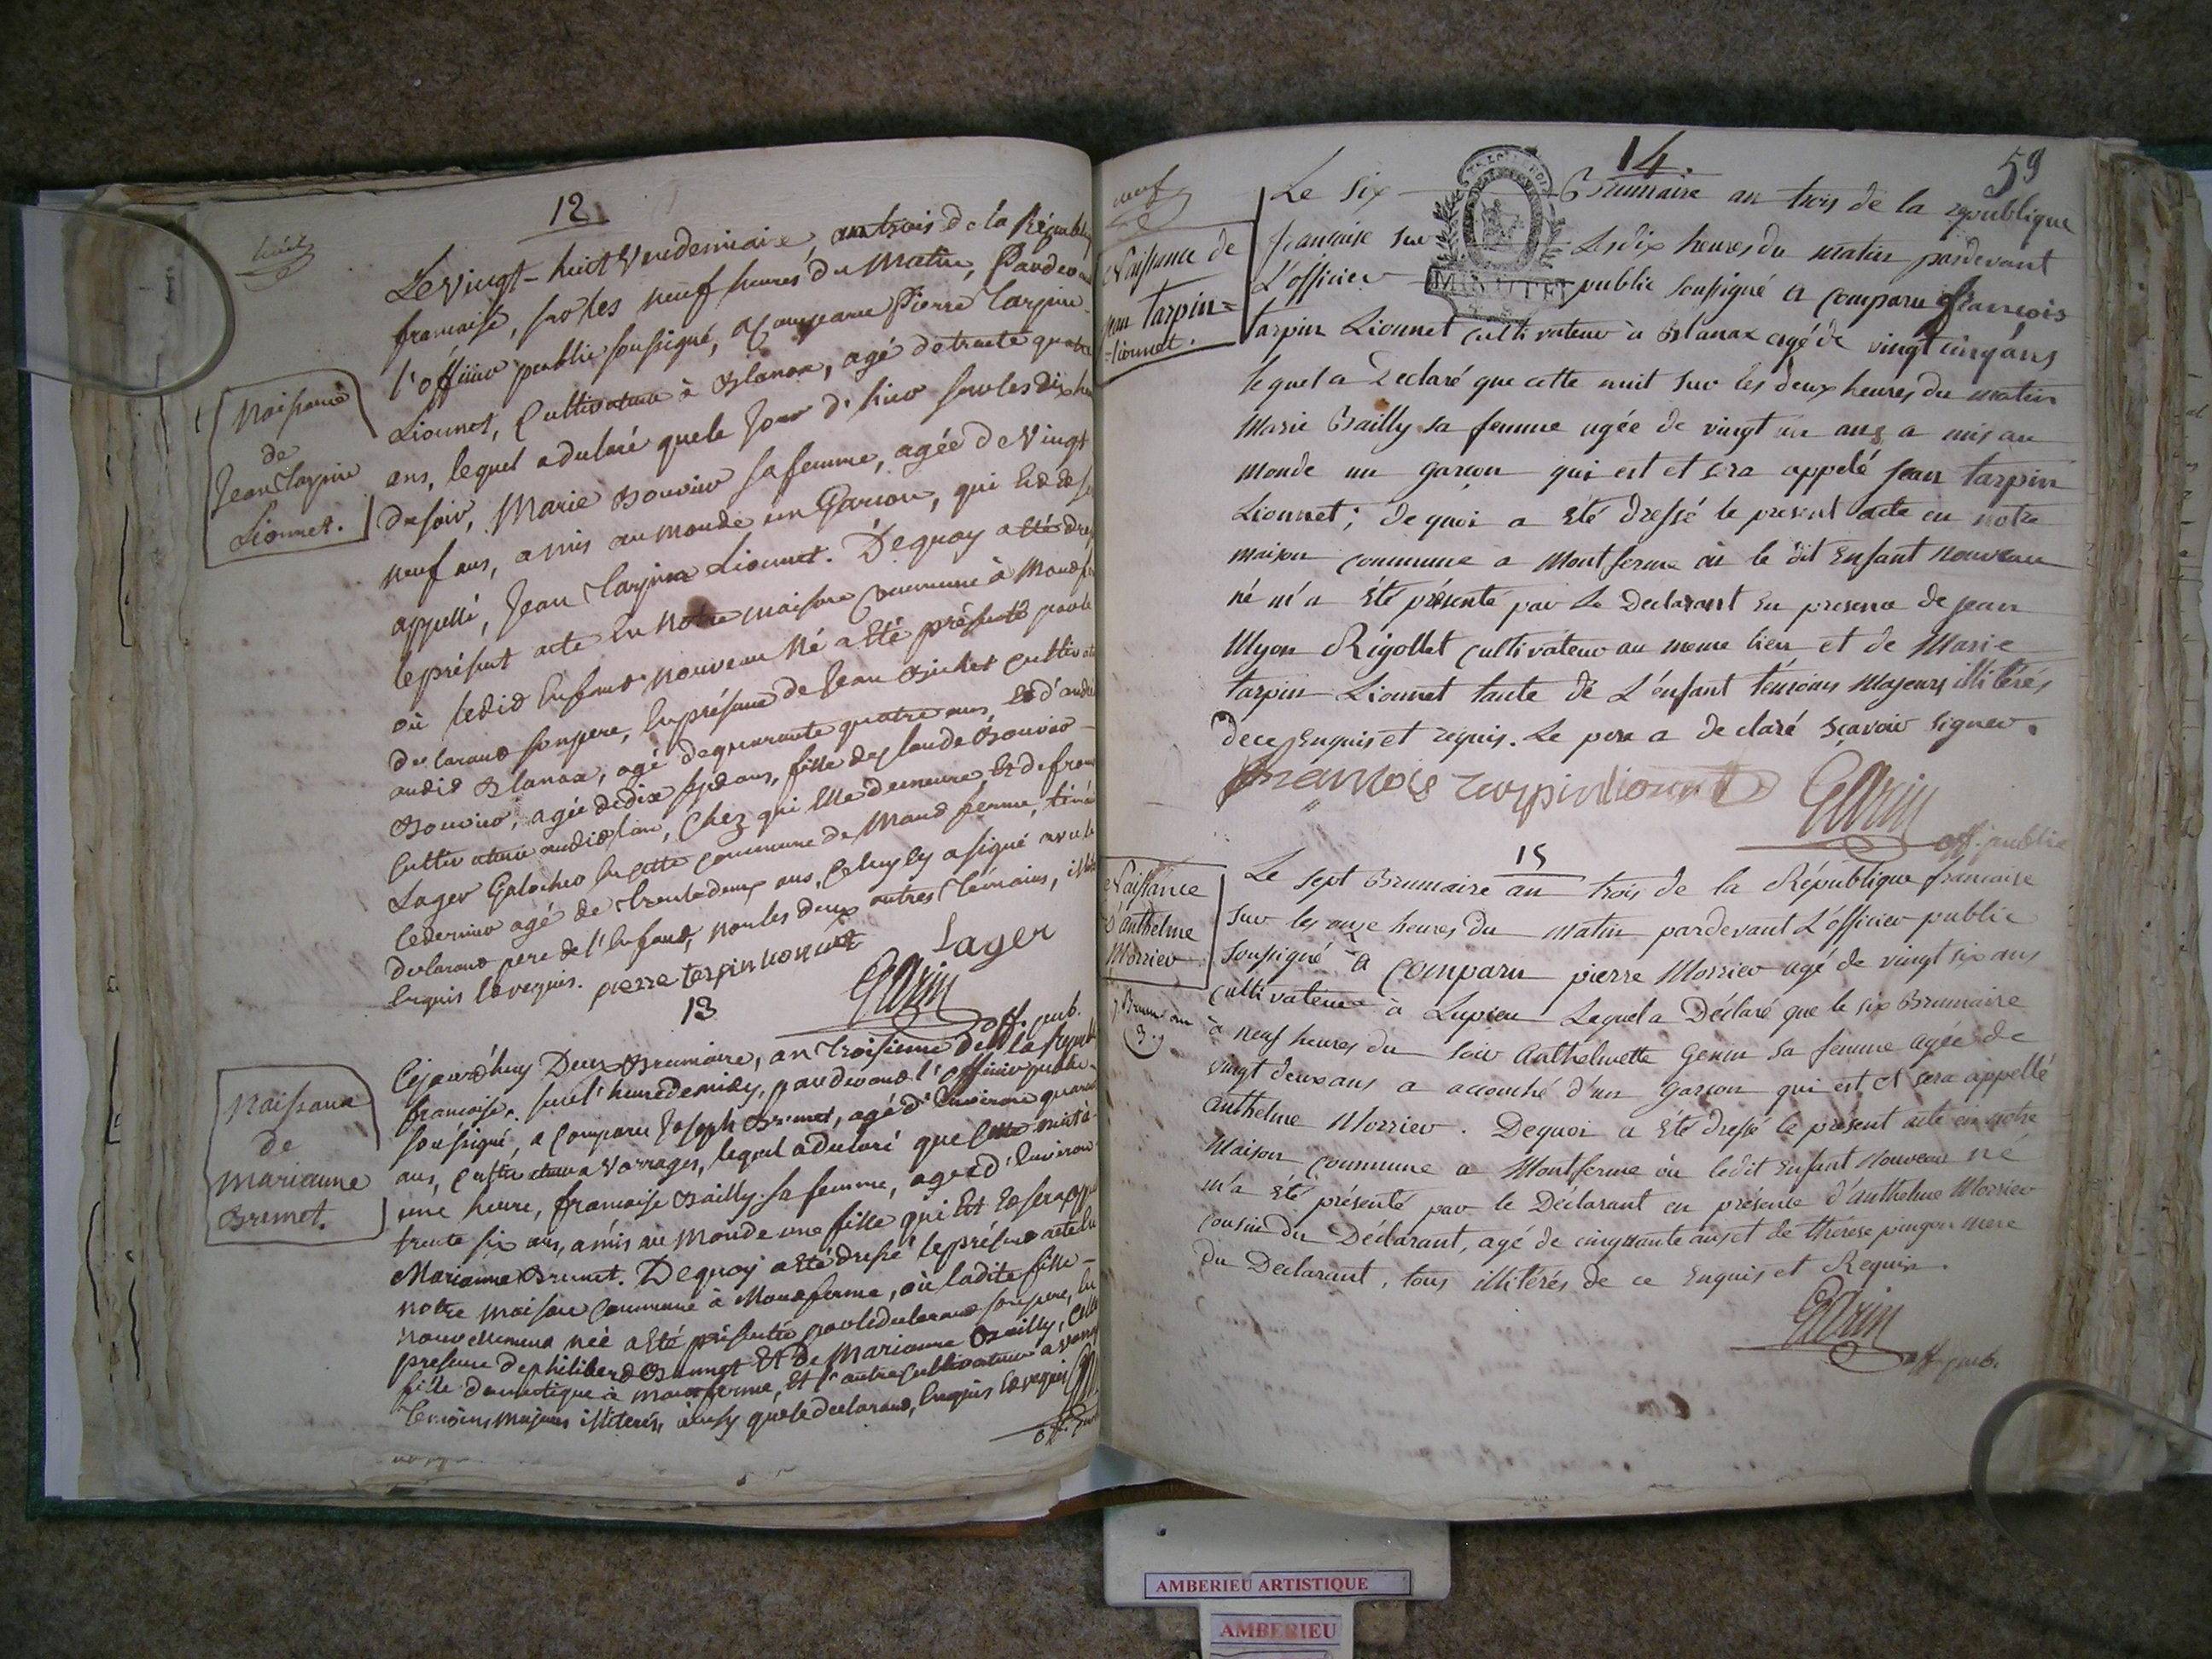 12
huit
Le Vingt-huit Vendemiaire, an trois de la Républi
francaise, sur les neuf heures du Matin, Pardevant
l'officier public soussigné, a Comparu Pierre Tarpin
Lionnet, Cultivateur à Blanaz, agé de trente quatre
ans, lequel a déclaré que le Jour d'hier sur les dix he
du soir, Marie Bouvier sa femme, agée de Vingt
neuf ans, a mis au monde un Garcon, qui est et se
appellé, Jean Tarpin Lionnet. De quoy a été dres
le présent acte en notre maison Commune à Montf
où ledit Enfant nouveau Né a été présenté par le
declarant son pere, en présence de Jean Bichet cultivat
audit Blanaz, agé de quarante quatre ans, et d'andré
Bouvier, agée de dix sept ans, fille de Claude Bouvier
Cultivateur audit lieu, Chez qui Elle demeure, et de fran
Lager Galocher en cette commune de Mont ferme, témoi
le dernier agé de trente deux ans, Celuy cy a signé avec le
declarant pere de l'Enfant, non les deux autres témoins, illité
Enquis et requis. pierre tarpin lionnet Lager
Garin
off. pub.
Naissance
de
Jean Tarpin
Lionnet.
13
Cejourd'huy Deux Brumaire, an troisieme de la Repub
francaise, sur l'heure de midy, pardevant l'officier public
soussigné, a Comparu Joseph Brunet, agé d'Environ quaran
ans, Cultivateur a Varrages, lequel a declaré que cette nuit à
une heure, francoise Bailly sa femme, agée d'Environ
trente six ans, a mis au monde une fille qui Est Et sera appe
Marianne Brunet. De quoy a été dressé le présent acte En
notre maison Commune à Montferme, où ladite fille
nouvellement née a été présentée par le declarant son pere, en
presence de philibert Brunet Et de Marianne Bailly, Celle
fille domestique à montferme, Et l'autre Cultivateur à varrag
témoins majeurs illiterés, ainsy que le declarant, Enquis et requis
off. pub
Naissance
de
Marianne
Brunet.
14.
59
neuf
Le six Brumaire an trois de la republique
francaise sur Les dix heures du matin pardevant
L'officier public soussigné a comparu françois
tarpin Lionnet cultivateur à Blanaz agé de vingt cinq ans
lequel a Declaré que cette nuit sur les deux heures du matin
Marie Bailly sa femme agée de vingt un ans a mis au
monde un garçon qui est et sera appelé jean tarpin
Lionnet; de quoi a été dressé le present acte en notre
maison commune a Montferme où le dit Enfant nouveau
né m'a été présenté par Le Declarant En presence de jean
Myon Rigollet cultivateur au meme lieu et de Marie
tarpin Lionnet tante de L'enfant témoins Majeurs illitérés
de ce Enquis et requis. Le pere a declaré sçavoir signer.
francois tarpin lionnet Garin
off. public
Naissance de
jean Tarpin=
=lionnet.
15
Le sept Brumaire an trois de la République francaise
sur les onze heures du matin pardevant L'officier public
soussigné a comparu pierre Morrier agé de vingt six ans
cultivateur à Lupieu Lequel a Déclaré que le six Brumaire
à neuf heures du soir Anthelmette Genin sa femme agée de
vingt deux ans a accouché d'un garcon qui est et sera appellé
anthelme Morrier. De quoi a été dressé le présent acte en notre
Maison commune a Montferme où ledit Enfant nouveau né
m'a été présenté par le Déclarant en présence d'anthelme Morrier
cousin du Déclarant, agé de cinquante ans et de thérése pingon mere
du Declarant, tous illitérés de ce Enquis et Requis.
Garin
off. pub.
Naissance
d'anthelme
Morrier
7 Brum. an
3.
AMBERIEU ARTISTIQUE
AMBERIEU